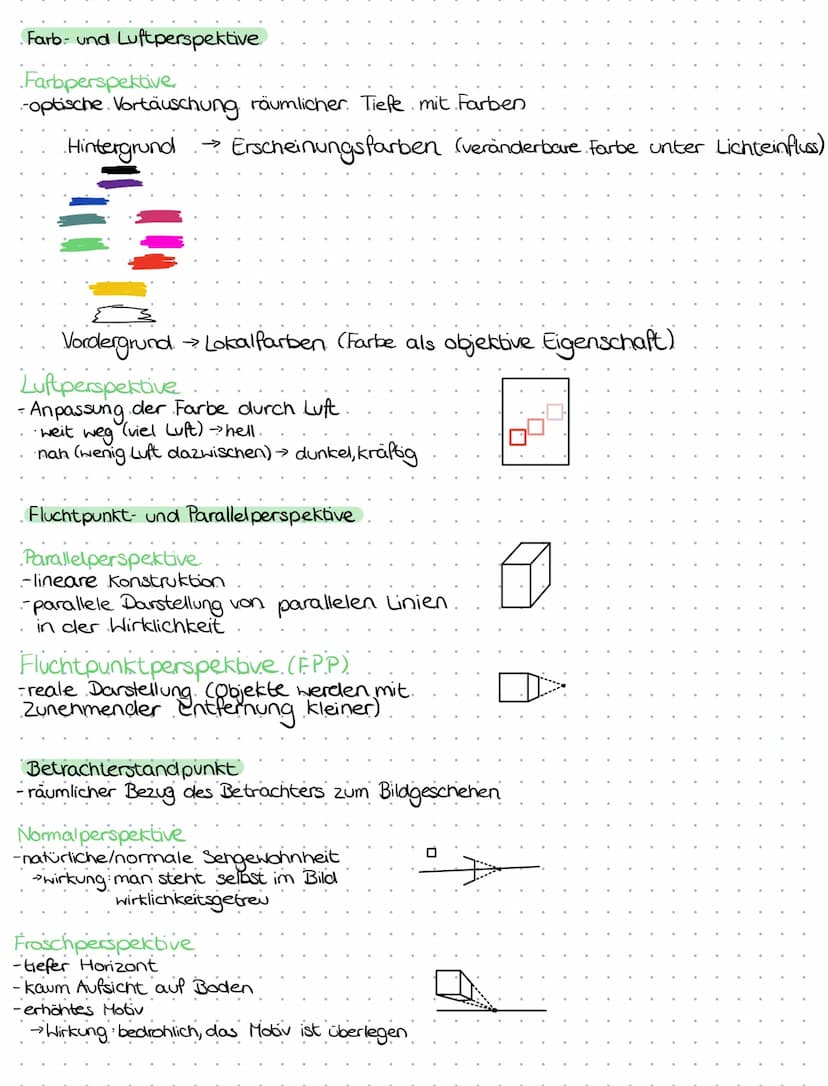 Farb- und Luftperspektive
Farbperspektive
-optische Vortäuschung räumlicher Tiefe mit Farben
Hintergrund → Erscheinungsfarben (veränderbare Farbe unter Lichteinfluss)
Vordergrund → Lokalfarben (Farbe als objektive Eigenschaft)
Luftperspektive
- Anpassung der Farbe durch Luft
· weit weg (viel Luft) → hell
· nah (wenig Luft dazwischen) → dunkel, kräftig
Fluchtpunkt- und Parallelperspektive
Parallelperspektive
-lineare Konstruktion
-parallele Darstellung von parallelen Linien
in der Wirklichkeit
Fluchtpunktperspektive (FPP)
-reale Darstellung (Objekte werden mit
zunehmender Entfernung kleiner)
Betrachterstandpunkt
- räumlicher Bezug des Betrachters zum Bildgeschehen
Normalperspektive
-natürliche/normale Sehgewohnheit
→wirkung: man steht selbst im Bild
wirklichkeitsgetreu
Froschperspektive
-tiefer Horizont
-kaum Aufsicht auf Boden
-erhöhtes Motiv
→Wirkung: bedrohlich, das Motiv ist überlegen